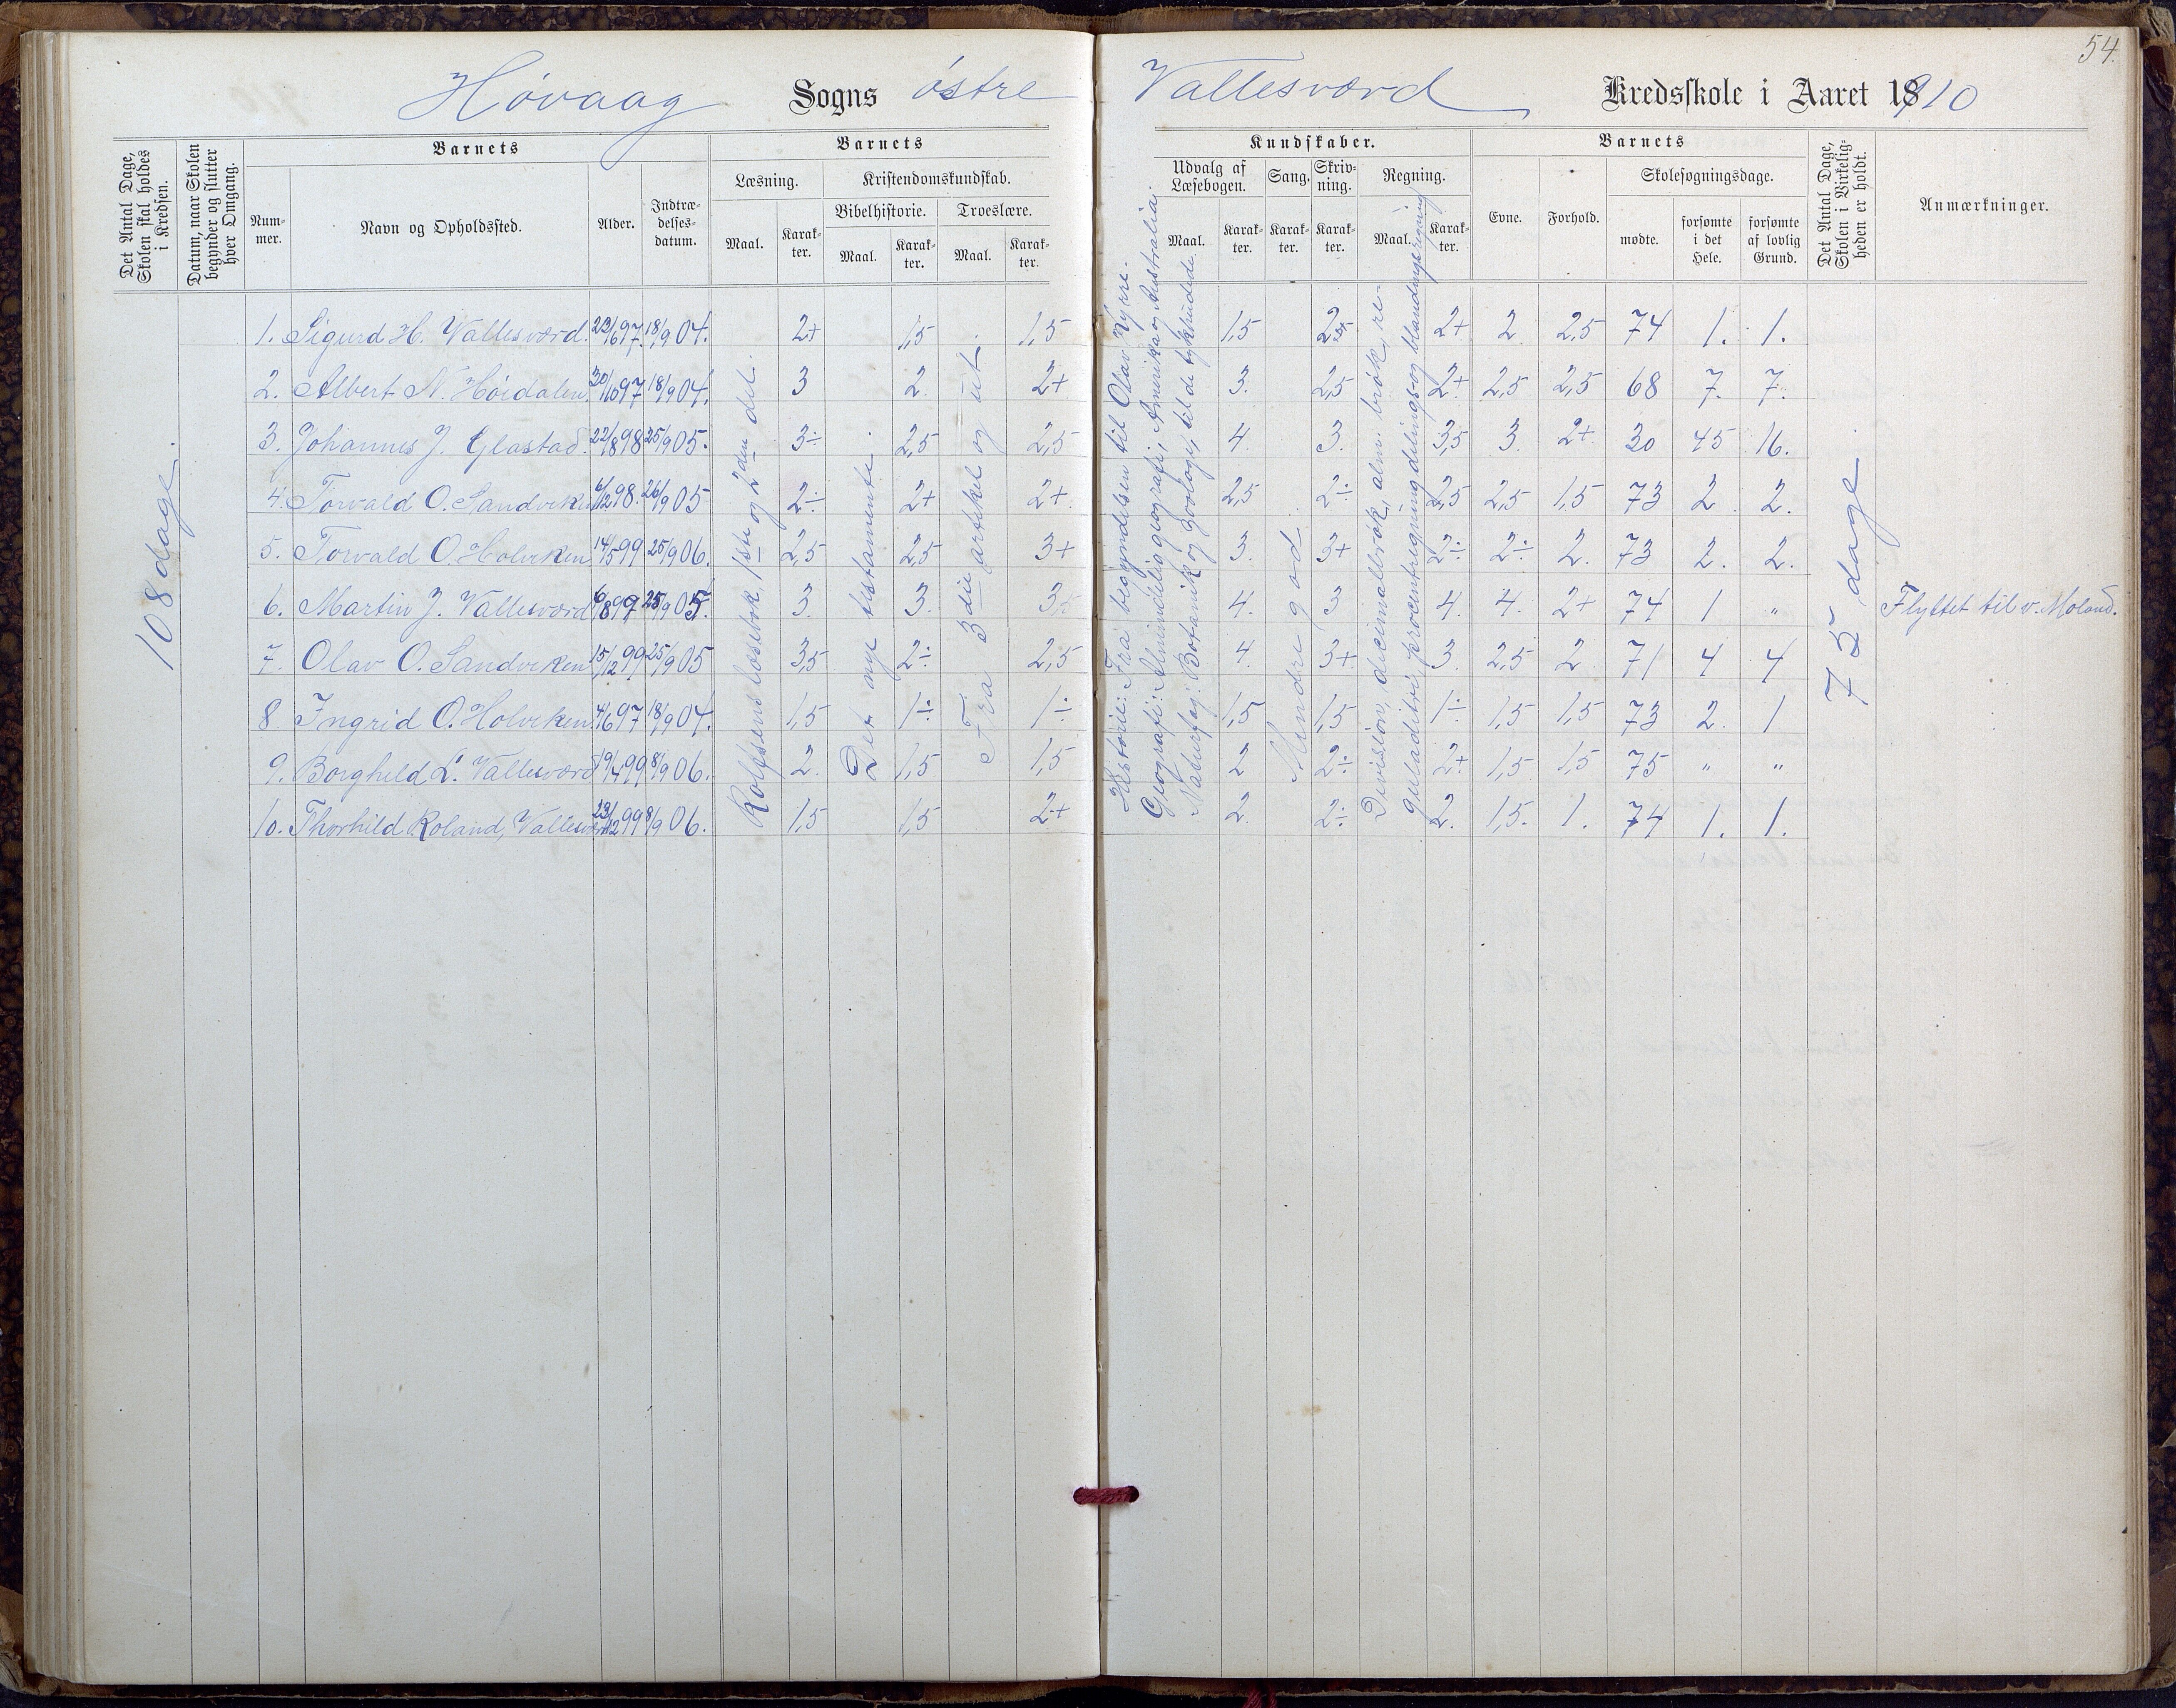 54.
Høvaag Sogns østre Vallesværd Kredsskole i Aaret 18910
Det Antal Dage, Skolen skal holdes i Kredsen.
Datum, naar Skolen begynder og slutter hver Omgang.
Barnets
Barnets
Kundskaber.
Barnets
Det Antal Dage, Skolen i Virkeligheden er holdt.
Anmærkninger.
Nummer.
Navn og Opholdssted.
Alder.
Indtrædelsesdatum.
Læsning.
Kristendomskundskab.
Bibelhistorie.
Troeslære.
Udvalg af Læsebogen.
Sang.
Skrivning.
Regning.
Evne.
Forhold.
Skolesøgningsdage.
Maal. Karakter. Maal. Karakter. Maal. Karakter. Maal. Karakter. Karakter. Karakter. Maal. Karakter.
mødte. forsømte i det Hele. forsømte af lovlig Grund.
108 dage.
Rolfsens læsebok, 1ste og 2den del.
Det nye testamente.
Fra 3die artikel og ut.
Historie: Fra begyndelsen til Olav Kyrre.
Geografi: Almindelig geografi, Amerika og Australia.
Naturfag: Botanik og Zoologi, til de tykhudede.
Mindre god
Division, decimalbrøk, alm. brøk, re-
guladitri, procentregning delings- og blandingsregning
75 dage.
1. Sigurd H. Vallesværd. 23/6 97. 18/9 04. 2+ 1,5 1,5 1,5 2,5 2+ 2 2,5 74 1. 1.
2. Albert N. Høidalen. 30/10 97 18/9 04. 3 2. 2+ 3. 2,5 2+ 2,5 2,5 68 7. 7.
3. Johannes J. Glastad. 22/8 98 25/9 05. 3÷ 2,5 2,5 4. 3. 3,5 3. 2+ 30 45 16.
4. Torvald O. Sandviken 6/12 98. 26/9 05 2÷ 2+ 2+. 2,5 2÷ 2,5 2,5 1,5 73 2. 2.
5. Torvald O. Holviken 14/5 99 25/9 06. 2,5 2,5 3+ 3. 3+ 2÷ 2÷ 2. 73 2. 2.
6. Martin J. Vallesværd 6/8 97 25/9 05. 3. 3. 3÷ 4. 3 4. 4. 2+ 74 1 " Flyttet til v. Moland.
7. Olav O. Sandviken 15/12 99 25/9 05 3,5 2÷ 2,5 4. 3+ 3. 2,5 2. 71 4 4
8. Ingrid O. Holviken. 4/6 97 18/9 04. 1,5 1÷ 1÷ 1,5 1,5 1÷ 1,5 1,5 73 2. 1
9. Borghild L. Vallesværd 19/4 99 8/9 06. 2. 1,5 1,5 2 2÷ 2+ 1,5 1,5 75 " "
10. Thorhild Roland, Vallesværd 23/12 99 8/9 06. 1,5 1,5 2+ 2. 2÷ 2. 1,5. 1. 74 1. 1.